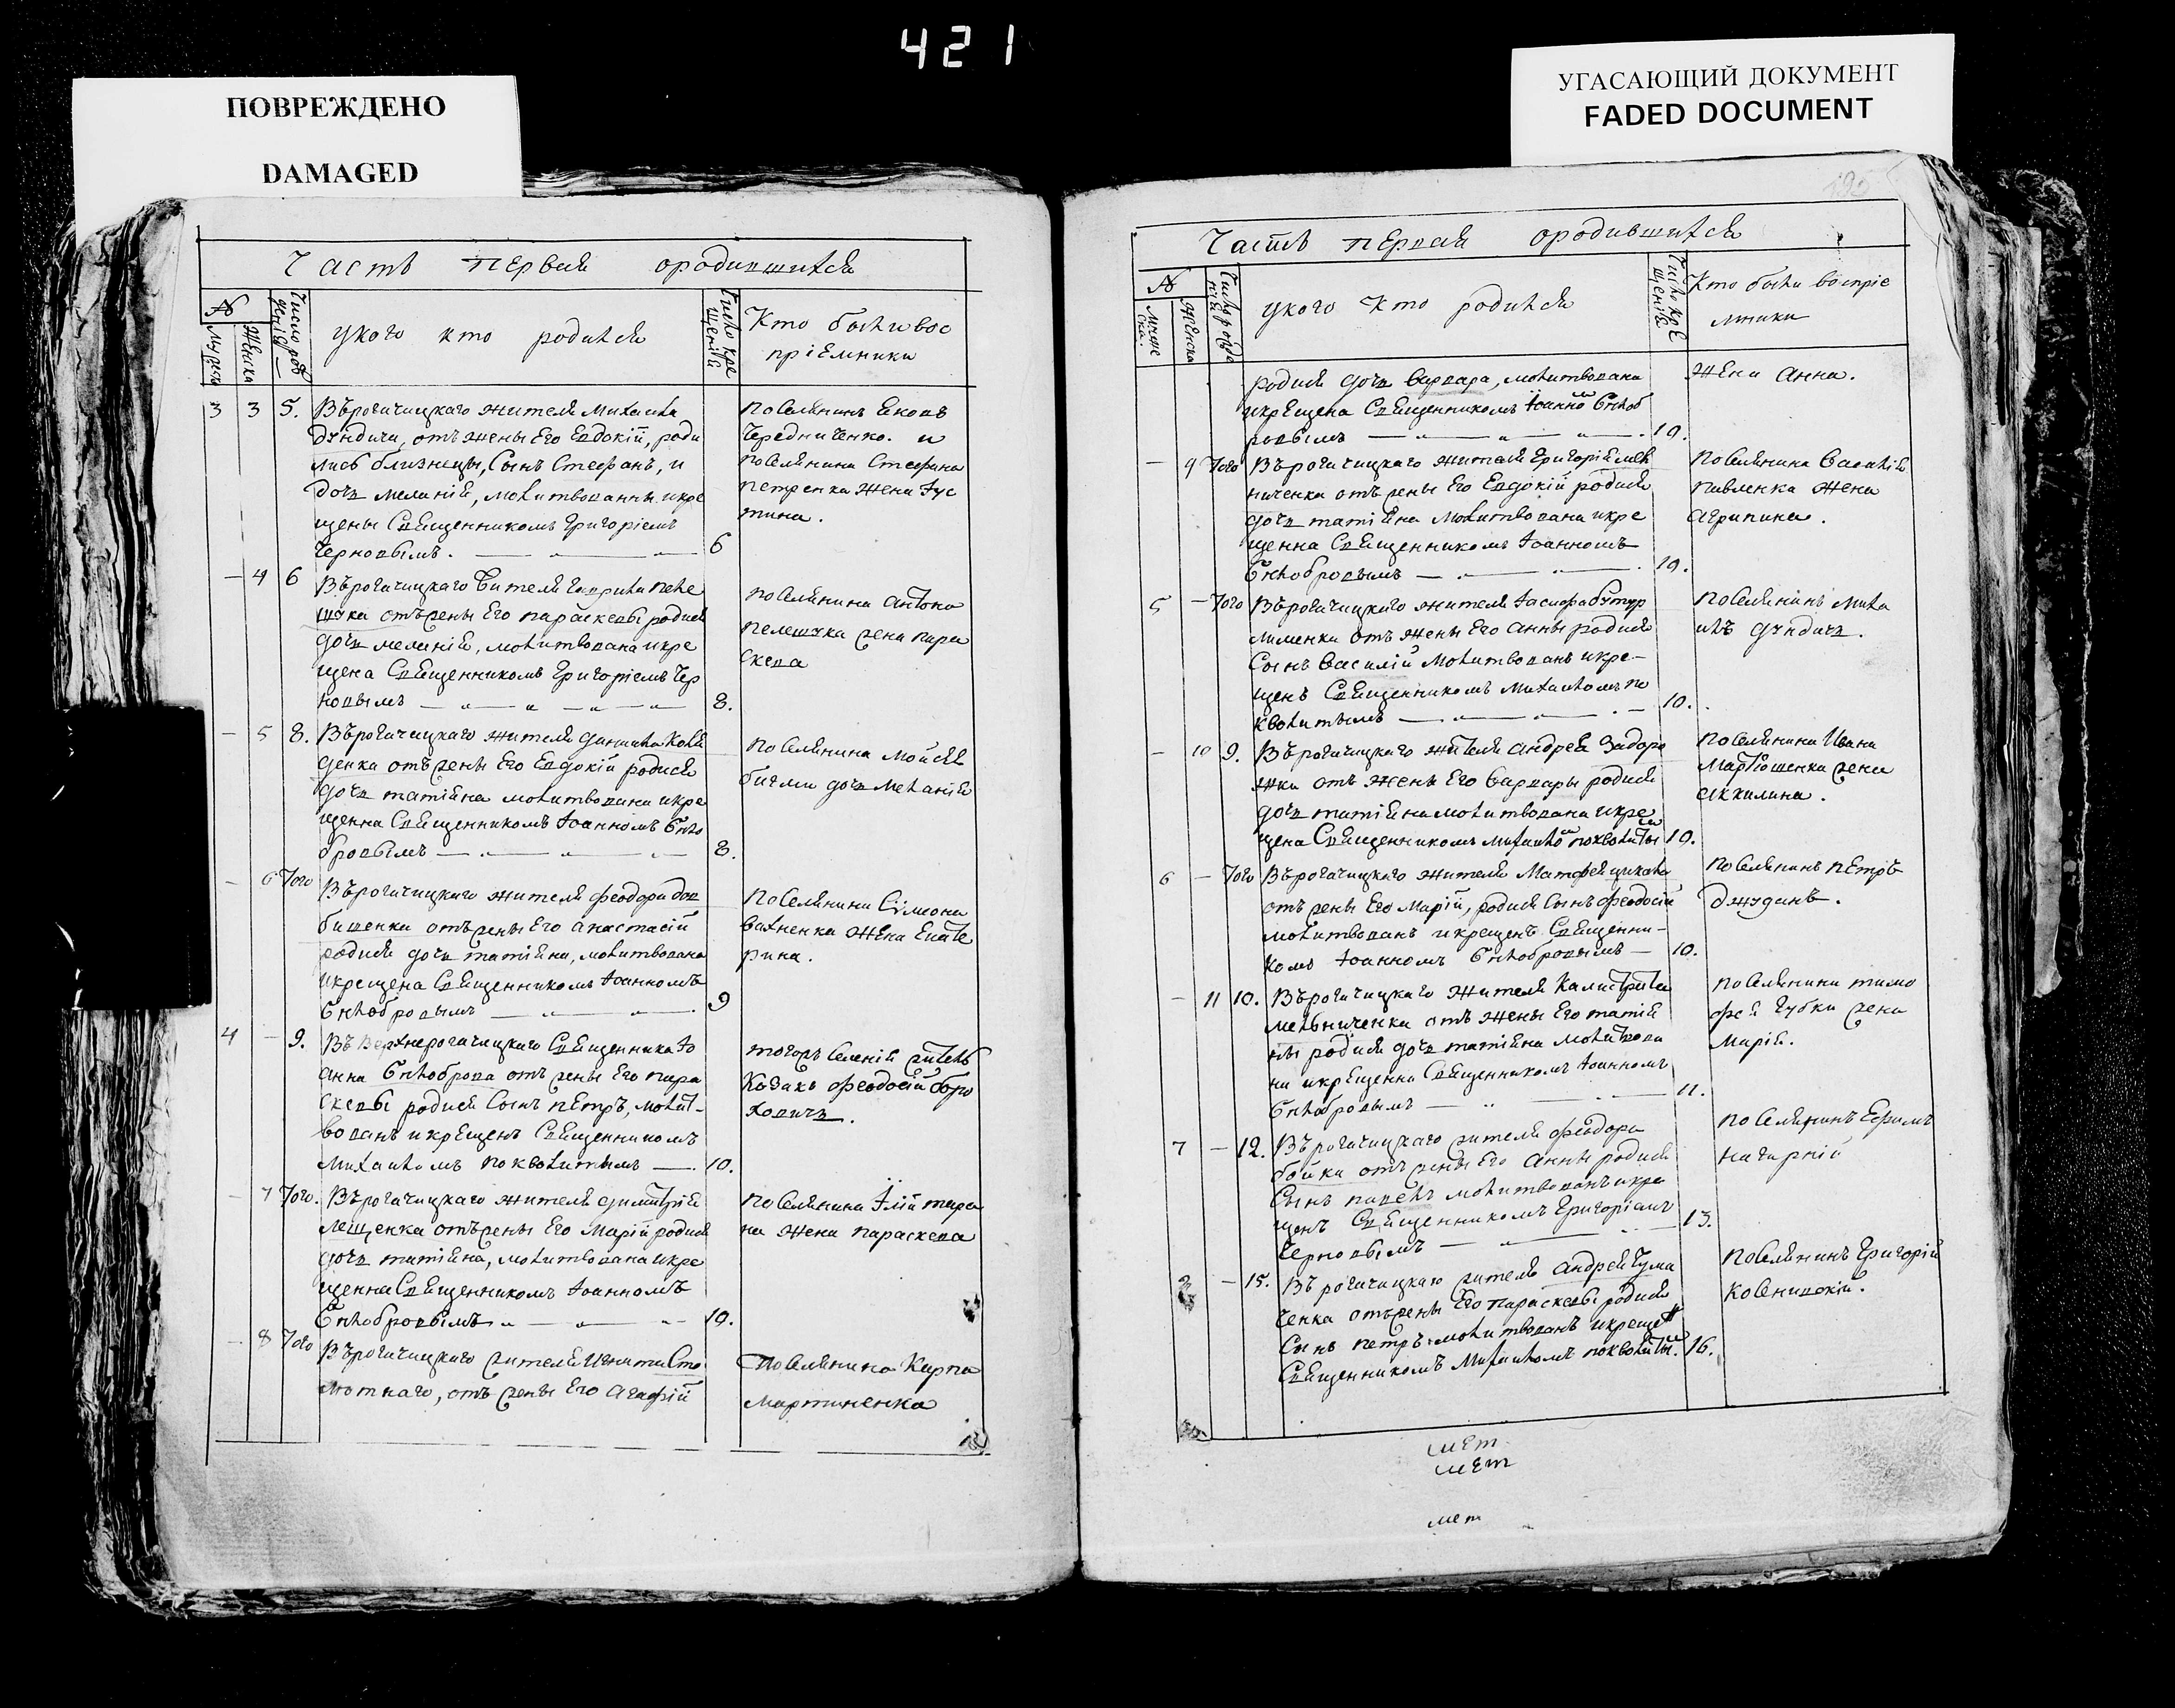 421
ПОВРЕЖДЕНО
DAMAGED
УГАСАЮЩИЙ ДОКУМЕНТ
FADED DOCUMENT
Часть первая ородившихся
№
Мужеск
Женска
Число рождения
укого кто родился
Число крещенія
Кто были вос
пріемники
3 3 5. Въ рогачицкаго жителя Михаила
Дундича, отъ жены Его Евдокій, роди
лись близнецы, Сынъ Стефанъ, и
дочь меланія, молитвованны икре
щены Священникомъ Григоріемъ
Черновымъ. 6
поселянинъ Яковъ
Чередниченко. и
поселянина Стефана
петренка жена Іус
тина.
- 4 6 Въ рогачицкаго жителя Гаврила пеле
шука отъ жены Его параскевы родися
дочь меланія, молитвована икре
щена Священникомъ Григоріемъ Чер
новымъ 8.
поселянина Антона
пелешука жена пара
скева
- 5 8. Въ рогачицкаго жителя Даниила Коля
денка отъ жены Его Евдокій родися
дочь татіяна молитвована икре
щенна Священникомъ Іоанномъ Бѣло
бровымъ 8.
поселянина Мойсея
бигми дочь Меланія
- 6 Того Въ рогачицкаго жителя феодора дов
бишенка отъ жены Его анастасій
родися дочь татіяна, молитвована
икрещена Священникомъ Іоанномъ
Бѣлобровымъ 9
поселянина Сімеона
вахненка жена Екате
рина.
4 - 9. Въ Верхнерогачицкаго Священника Іо
анна Бѣлоброва отъ жены Его пара
скевы родися Сынъ петръ, молит-
вованъ икрещенъ Священникомъ
Михаиломъ поквалитымъ 10.
тогожъ Селенія житель
Козакъ феодосій боро
ховичъ.
- 7 Того. Въ рогачицкаго жителя Димитрія
Лещенка отъ жены Его Марій родися
дочь татіяна, молитвована икре
щенна Священникомъ Іоанномъ
Бѣлобровымъ 10.
поселянина Ілій тара
на жена параскева
- 8 Того Въ рогачицкаго жителя Игнати Сто
мотнаго, отъ жены Его Агафій
поселянина Карпа
мартиненка
Часть первая ородившихся
№
Муже
ска.
Женска
Число рожденія
укого кто родился
Число крещенія
Кто были воспріе
мники
родися дочь варвара, молитвована
икрещена Священникомъ Іоанномъ Бѣлоб
ровымъ 10.
жена Анна.
- 9 Того Въ рогачицкаго жителя Григорія мел
ниченка отъ жены Его Евдокій родися
дочь татіяна молитвована икре
щенна Священникомъ Іоанномъ
Бѣлобровымъ 10.
поселянина василія
павленка жена
агрипина.
5 - Того Въ рогачицкаго жителя Іасифа бутур
лименка отъ жены Его Анны родися
Сынъ василій молитвованъ икре-
щенъ Священникомъ Михаиломъ по
квалитымъ 10.
поселянинъ Миха
илъ Дундичъ.
- 10 9. Въ рогачицкаго жителя Андрея Задоро
жка отъ жены Его варвары родися
дочь татіяна молитвована икре
щена Священникомъ Михаиломъ поквалиты 10.
поселянина Ивана
Мартюшенка жена
акилина.
6 - Того Въ рогачицкаго жителя Матфея цикала
отъ жены Его Марій, родися Сынъ феодосій
молитвованъ икрещенъ Священни-
комъ Іоанномъ Бѣлобровымъ 10.
поселянинъ петръ
Джуданъ.
- 11 10. Въ рогачицкаго жителя Калистрата
мельниченка отъ жены Его татія
ны родися дочь татіяна молитвова
на икрещенна Священникомъ Іоанномъ
Бѣлобровымъ 11.
поселянина тимо
фея губки жена
Марія.
7 - 12. Въ рогачицкаго жителя феодора
бойка отъ жены Его Анны родися
Сынъ павелъ молитвованъ икре
щенъ Священникомъ Григоріемъ
Черновымъ 13.
поселянинъ Ефимъ
нагирній
8 - 15. Въ рогачицкаго жителя андрея чума
ченка отъ жены Его параскевы родися
Сынъ петръ молитвованъ икрещен
Священникомъ Михаиломъ поквалиты. 16.
поселянинъ Григорій
Косенивскій.
мет
мет
мет